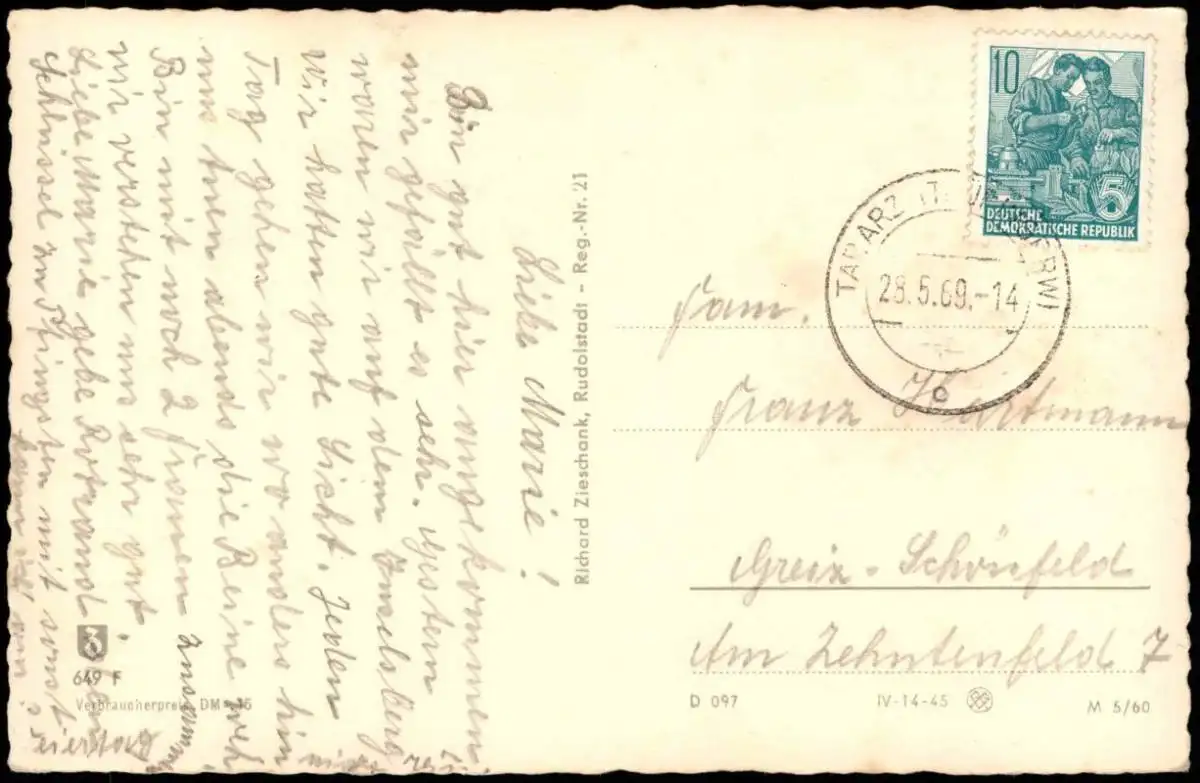 Liebe Marie!
Bin gut hier angekommen,
mir gefällt es sehr. Gestern
waren wir auf dem Inselsberg
wir hatten gute Sicht. Jeden
Tag gehen wir wo anders hin
uns tuen abends die Beine weh
Bin mit noch 2 Frauen zusammen
wir verstehen uns sehr gut.
Liebe Marie gebe Rotraud den
Schlüssel zu Pfingsten mit sonst
kann ich
Feiertag
Richard Zieschank, Rudolstadt - Reg.-Nr. 21
649 F
Verbraucherpreis DM -,15
10
5
DEUTSCHE
DEMOKRATISCHE REPUBLIK
TABARZ (THÜR WALD
28.5.69.-14
c
Fam.
Franz Hartmann
Greiz-Schönfeld
Am Zehntenfeld 7
D 097
IV-14-45
M 5/60